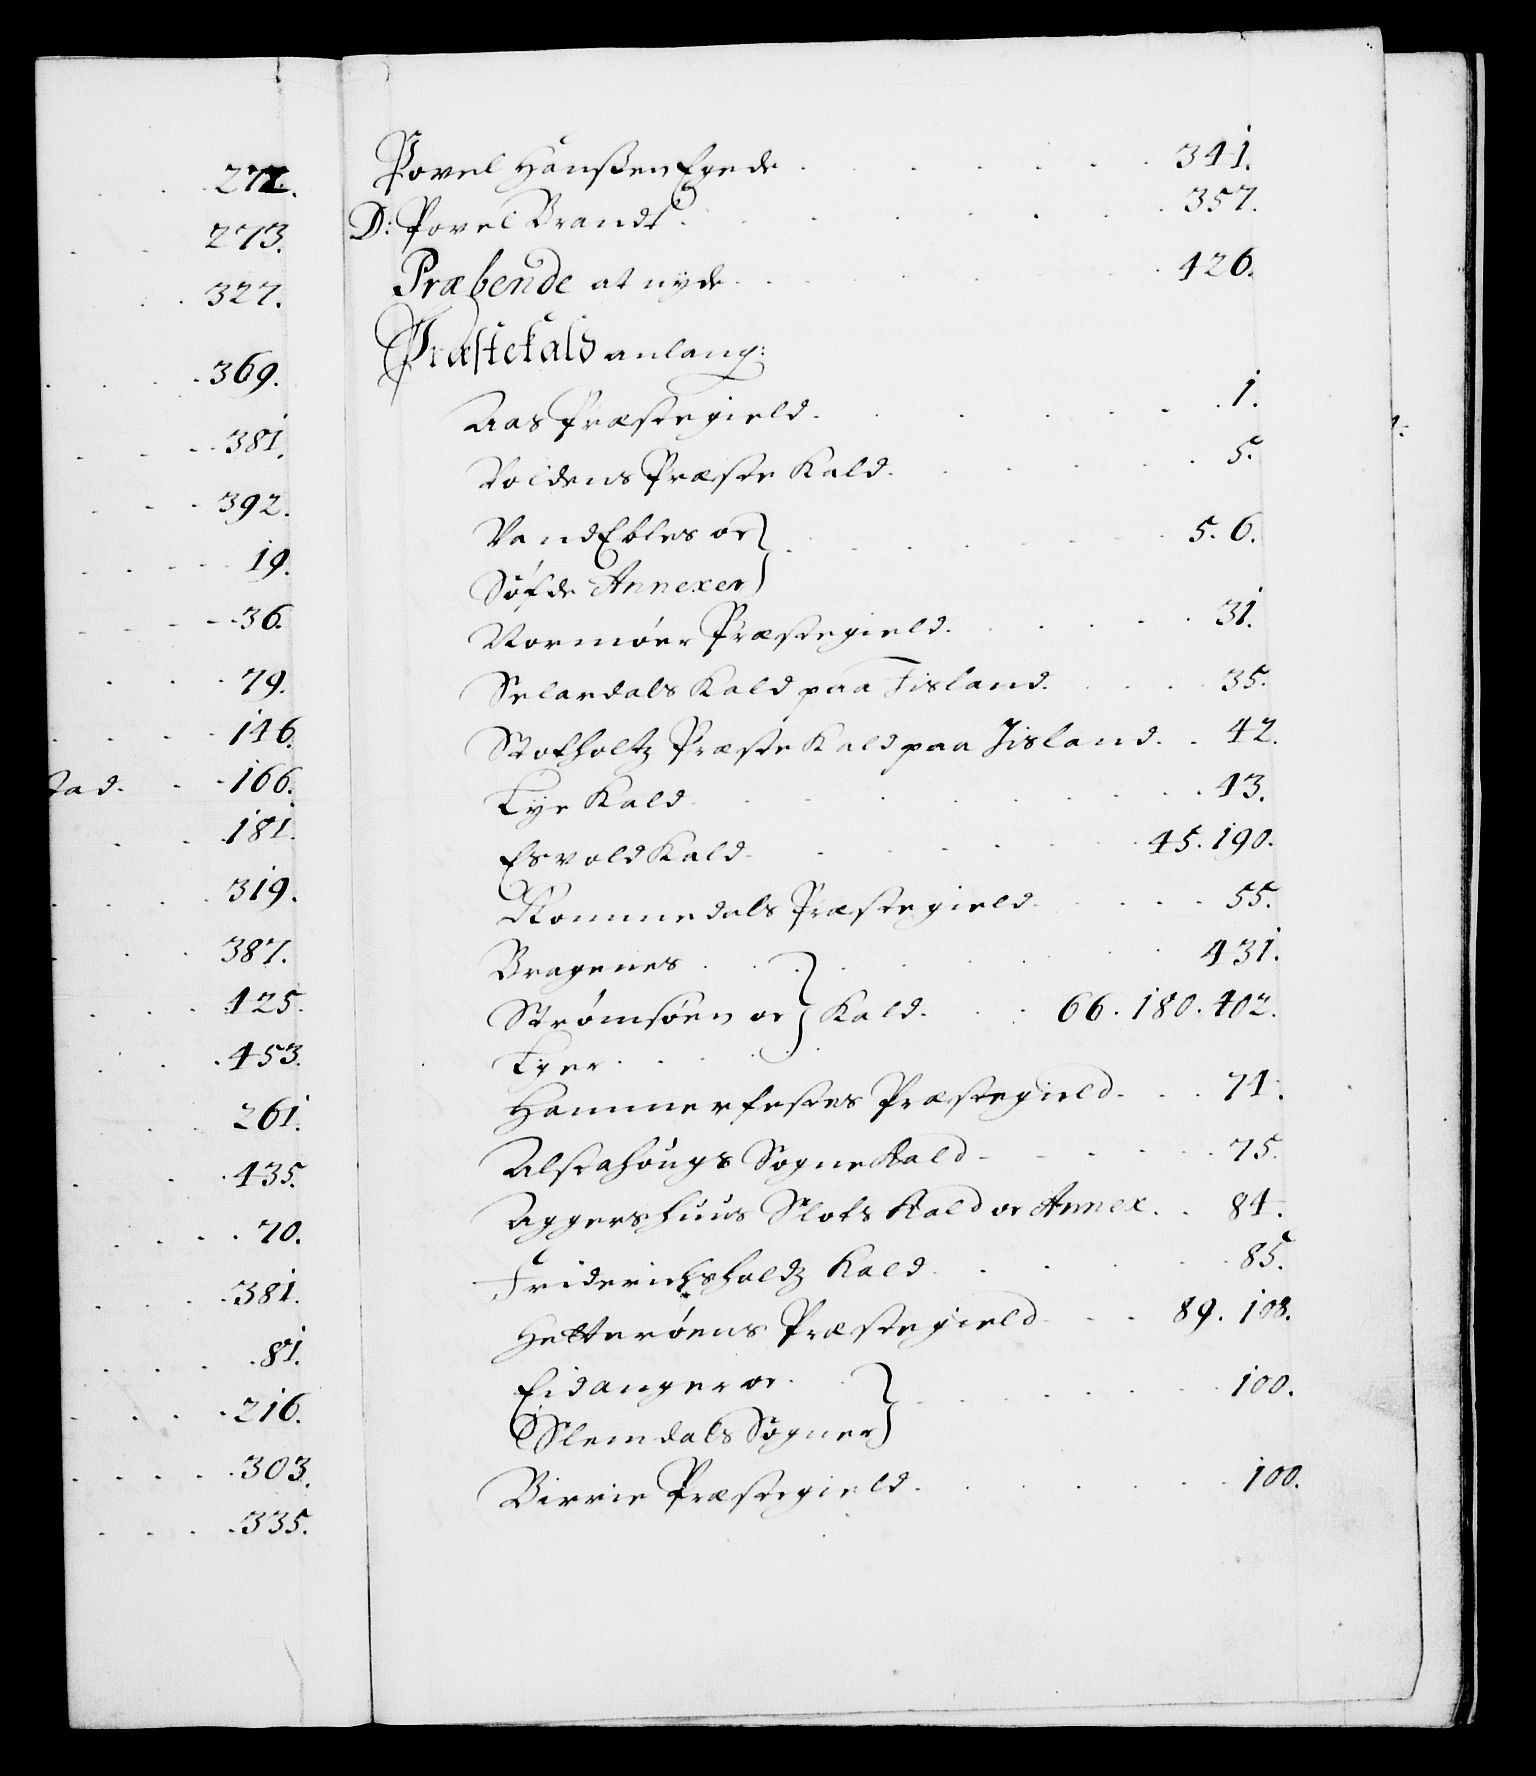 271.
273.
327.
369.
381.
392.
19.
36.
79.
146.
166.
181.
319.
387.
425.
453.
261.
435.
70.
381.
81.
216.
303.
335.
Povel Hanßen Egede 341.
D: Povel Brandt 357.
Præbende at nyde 426.
Præstekald anlang:
Aas Præstegield 1.
Voldens Præste Kald 5.
VandEbles oc 5. 6.
Søfde Annexer
Normøer Præstegield 31.
Selardals Kald paa Jisland 35.
Skolholtz Præste Kald paa Jisland 42.
Lye Kald 43.
Esvold Kald 45. 190.
Rommedals Præstegield 55.
Bragenes 431.
Strømsøen oc Kald 66. 180. 402.
Lyer
Hammerfestes Præstegield 74.
Alstahougs Sogne Kald 75.
Aggershuus Slots Kald oc Annex 84.
Friderichsholdz Kald 85.
Hetterøens Præstegield 89. 108.
Eidanger oc 100.
Slemdals Sogner
Birrie Præstegield 100.